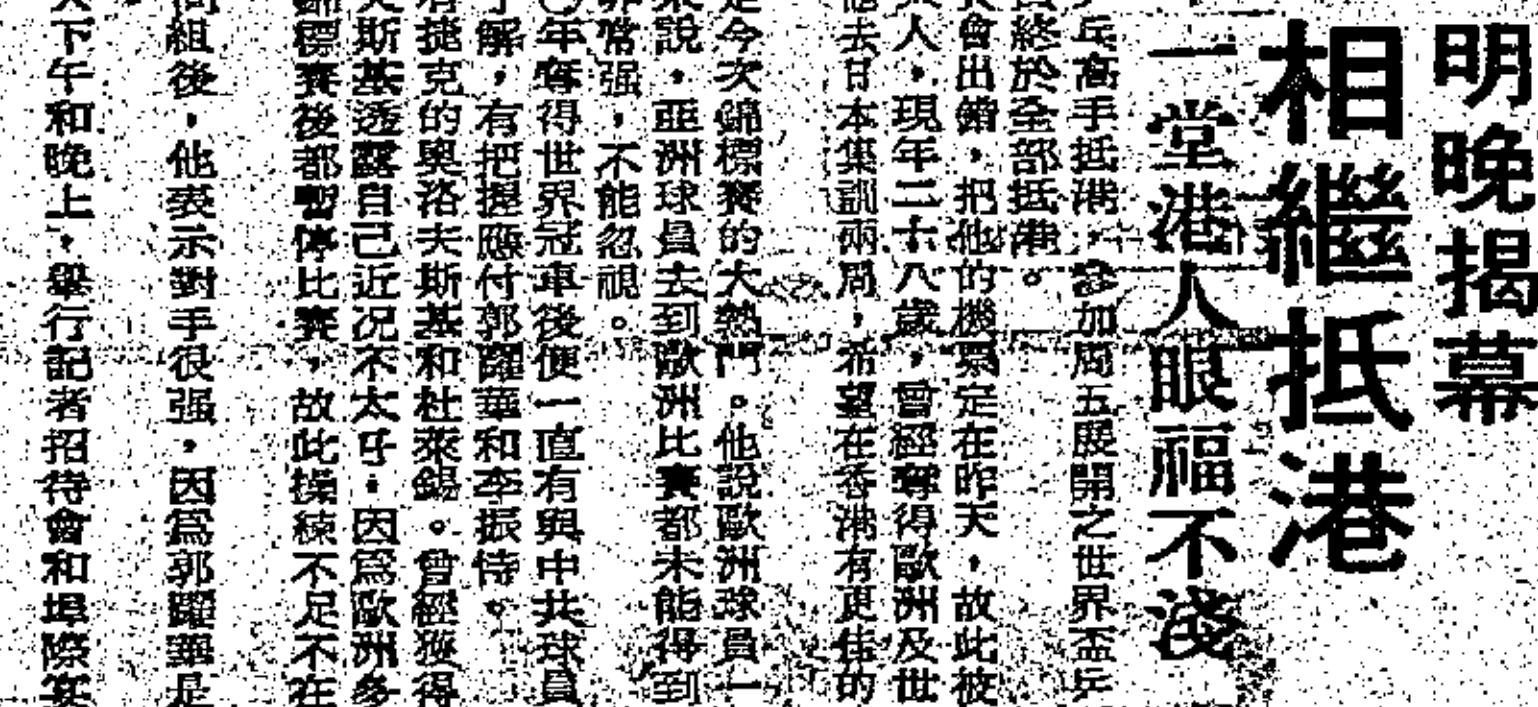 明晚揭幕
相繼抵港
一堂港人眼福不淺
乒高手抵港，參加周五展開之世界盃乒
終於全部抵港。
會出錯，把他的機票定在昨天，故此被
人，現年二十八歲，曾經奪得歐洲及世
他去日本集訓兩周，希望在香港有更佳的
是今次錦標賽的大熱門。他說歐洲球員一
來說，亞洲球員去到歐洲比賽都未能得到
非常强，不能忽視。
〇年奪得世界冠軍後便一直有與中共球員
了解，有把握應付郭躍華和李振恃。
有捷克的奧洛夫斯基和杜萊錫。曾經獲得
夫斯基透露自己近況不太好，因爲歐洲多
錦標賽後都暫停比賽，故此操練不足不在
同組後，他表示對手很强，因爲郭躍華是
天下午和晚上，舉行記者招待會和埠際宴